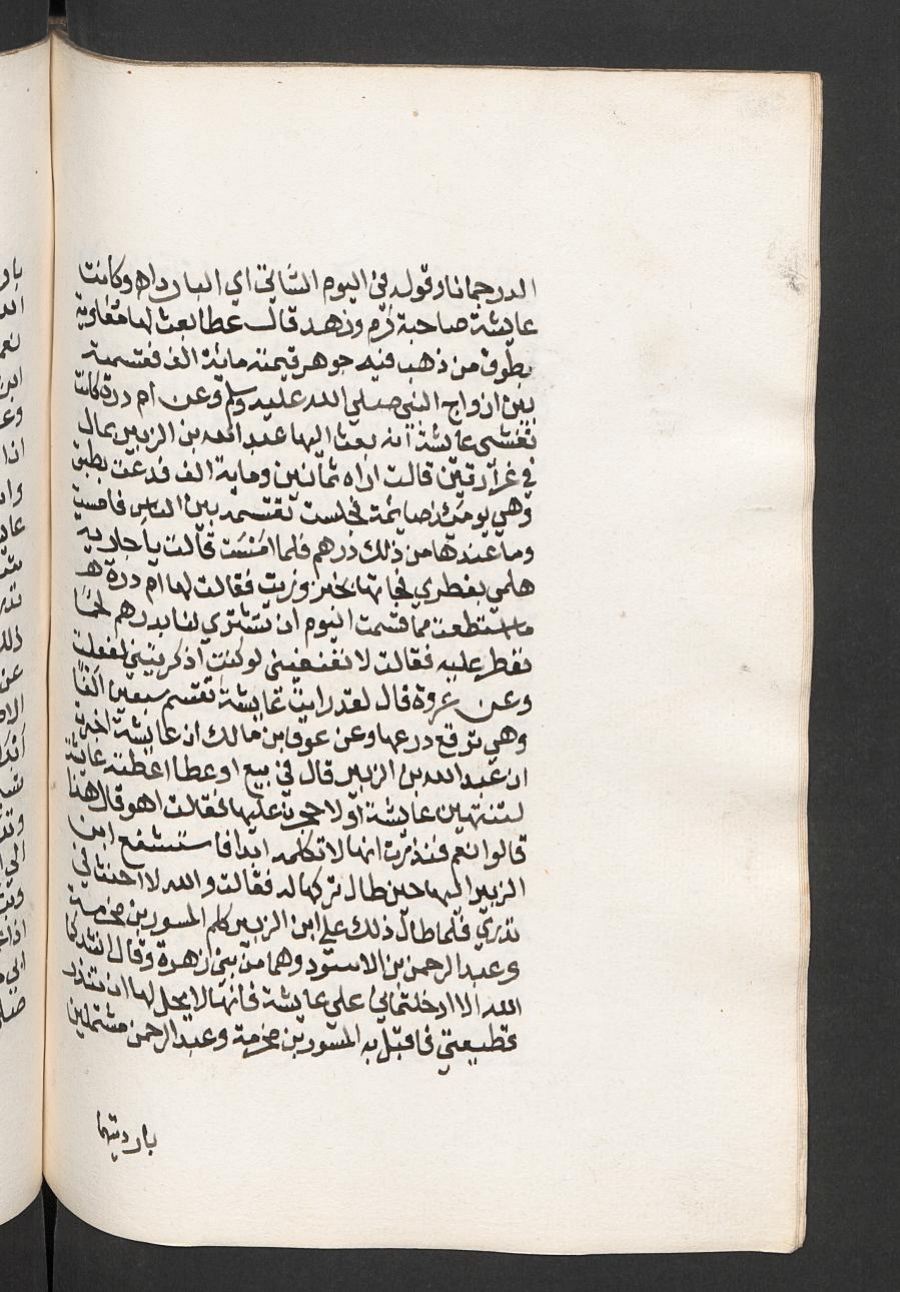 الدر جمانا وقوله في اليوم الشاتي اي البارد اه وكانت
عايشة صاحبة كرم وزهد قال عطا بعث لها معاوية
بطوق من ذهب فيه جوهر قيمته ماية الف فقسمته
بين ازواج النبي صلي الله عليه وسلم وعن ام درة كانت
تغشي عايشة انه بعث اليها عبد الله بن الزبير بمال
في غرارتين قالت اراه ثمانين وماية الف فدعت بطبق
وهي يومئذ صايمة فجلست تقتسمه بين الناس فامست
وما عندها من ذلك درهم فلما امست قالت يا جارية
هلمي بفطري فجاتها بخبز وزيت فقالت لها ام درة
ما استطعت مما قسمت اليوم ان تشتري لنا بدرهم لحما
نفطر عليه فقالت لا تعنفيني لو كنت اذكرتيني لفعلت
وعن عروة قال لقد رايت عايشة تقسم سبعين الفا
وهي ترقع درعها وعن عوف بن مالك ان عايشة اخبرت
ان عبد الله بن الزبير قال في بيع او عطا اعطته عايشة
لتنتهين عايشة او لاحجرن عليها فقالت اهو قال هذا
قالوا نعم فنذرت انها لا تكلمه ابدا فاستشفع ابن
الزبير اليها حين طال تركها له فقالت والله لا احنث في
نذري فلما طال ذلك علي ابن الزبير كلم المسور بن مخرمة
وعبد الرحمن بن الاسود وهما من بني زهرة وقال انشدكما
الله الا ادخلتماني علي عايشة فانها لا يحل لها ان تنذر
قطيعتي فاقبل به المسور بن مخرمة وعبد الرحمن مشتملين
بارديتهما